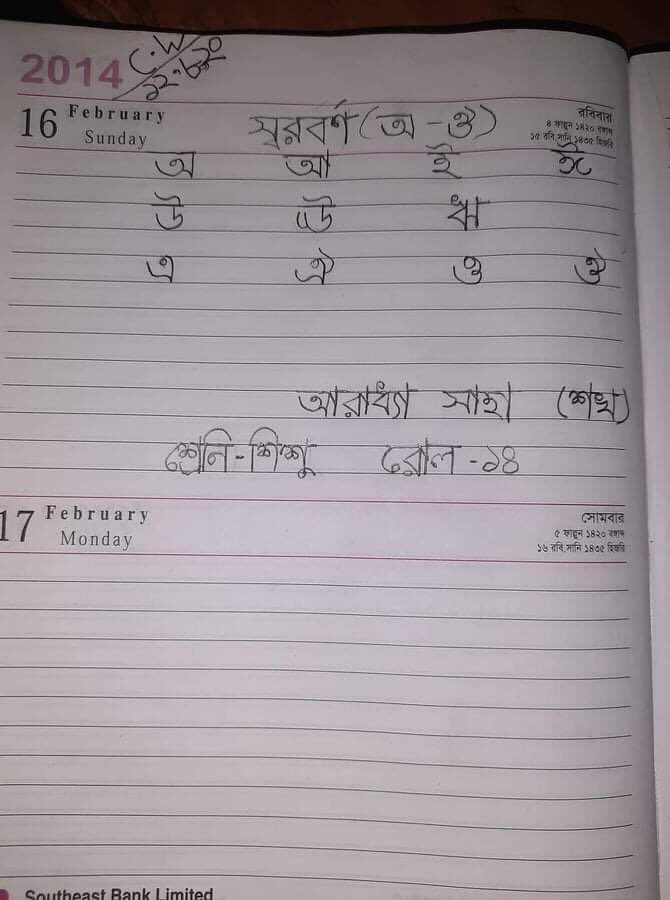 2014 C.W
১২.৮.২০
16 February
Sunday
রবিবার
৪ ফাল্গুন ১৪২০ বঙ্গাব্দ
১৫ রবি.সানি ১৪৩৫ হিজরি
স্বরবর্ণ (অ - ঔ)
অ আ ই ঈ
উ ঊ ঋ
এ ঐ ও ঔ
আরাধ্যা সাহা (শঙ্খ)
শ্রেনি - শিশু রোল - ১৪
17 February
Monday
সোমবার
৫ ফাল্গুন ১৪২০ বঙ্গাব্দ
১৬ রবি.সানি ১৪৩৫ হিজরি
Southeast Bank Limited